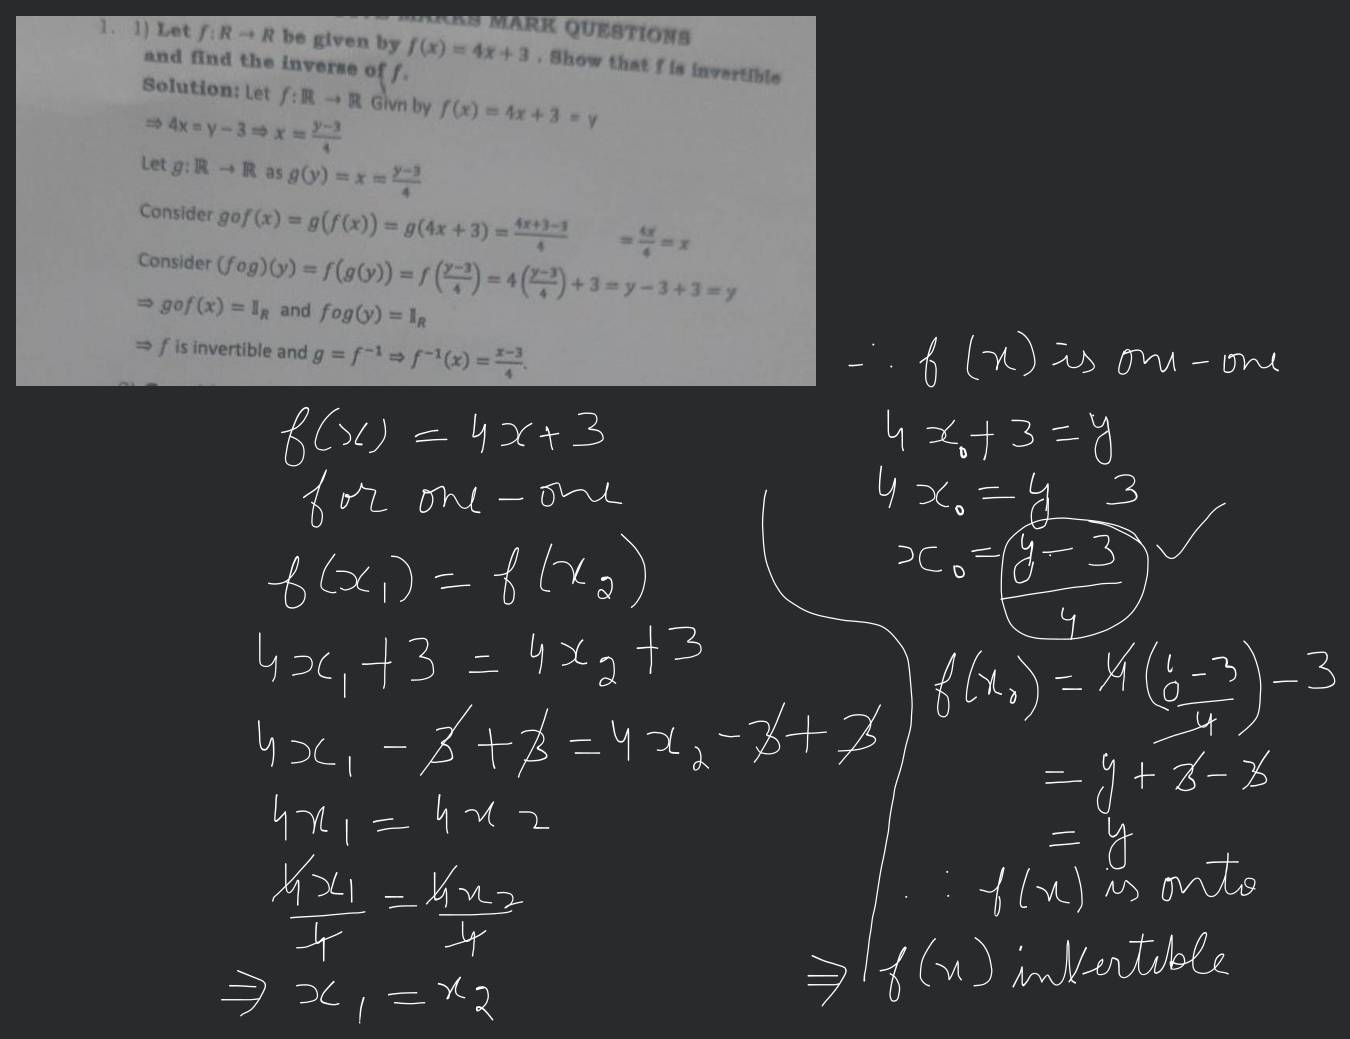 MARKS MARK QUESTIONS
1. 1) Let f: R → R be given by f(x) = 4x + 3 . Show that f is invertible
and find the inverse of f.
Solution: Let f: ℝ → ℝ Givn by f(x) = 4x + 3 = y
⇒ 4x = y − 3 ⇒ x = (y−3)/4
Let g: ℝ → ℝ as g(y) = x = (y−3)/4
Consider gof(x) = g(f(x)) = g(4x + 3) = (4x+3−3)/4 = 4x/4 = x
Consider (fog)(y) = f(g(y)) = f((y−3)/4) = 4((y−3)/4) + 3 = y − 3 + 3 = y
⇒ gof(x) = 𝕀R and fog(y) = 𝕀R
⇒ f is invertible and g = f⁻¹ ⇒ f⁻¹(x) = (x−3)/4.
f(x) = 4x + 3
for one - one
f(x₁) = f(x₂)
4x₁ + 3 = 4x₂ + 3
4x₁ - 3 + 3 = 4x₂ - 3 + 3
4x₁ = 4x₂
4x₁/4 = 4x₂/4
⇒ x₁ = x₂
∴ f(x) is one - one
4x₀ + 3 = y
4x₀ = y 3
x₀ = (y - 3)/4 ✓
f(x₀) = 4( -3/4) - 3
= y + 3 - 3
= y
∴ f(x) is onto
⇒ f(x) invertible